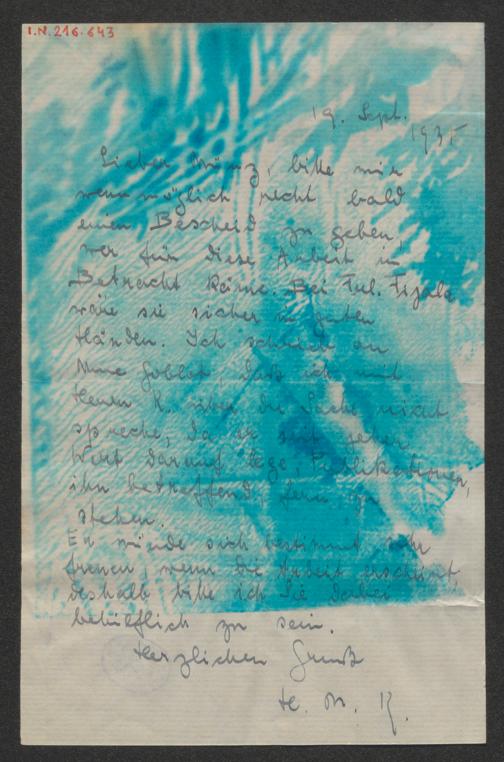 I.N. 216.643
19. Sept.
1935
Lieber Münz, bitte mir
wenn möglich recht bald
einen Bescheid zu geben,
wer für diese Arbeit in
Betracht käme. Bei Frl.
wäre sie sicher in guten
Händen. Ich schrieb an
Mme Goblot, daß ich mit
Herrn K. über die Sache nicht
spreche, da er seit jeher
Wert darauf lege, Publikationen,
ihn betreffend, fern zu
stehen.
Er würde sich bestimmt sehr
freuen, wenn die Arbeit erscheint,
deshalb bitte ich Sie dabei
behilflich zu sein.
Herzlichen Gruß
H. M. K.